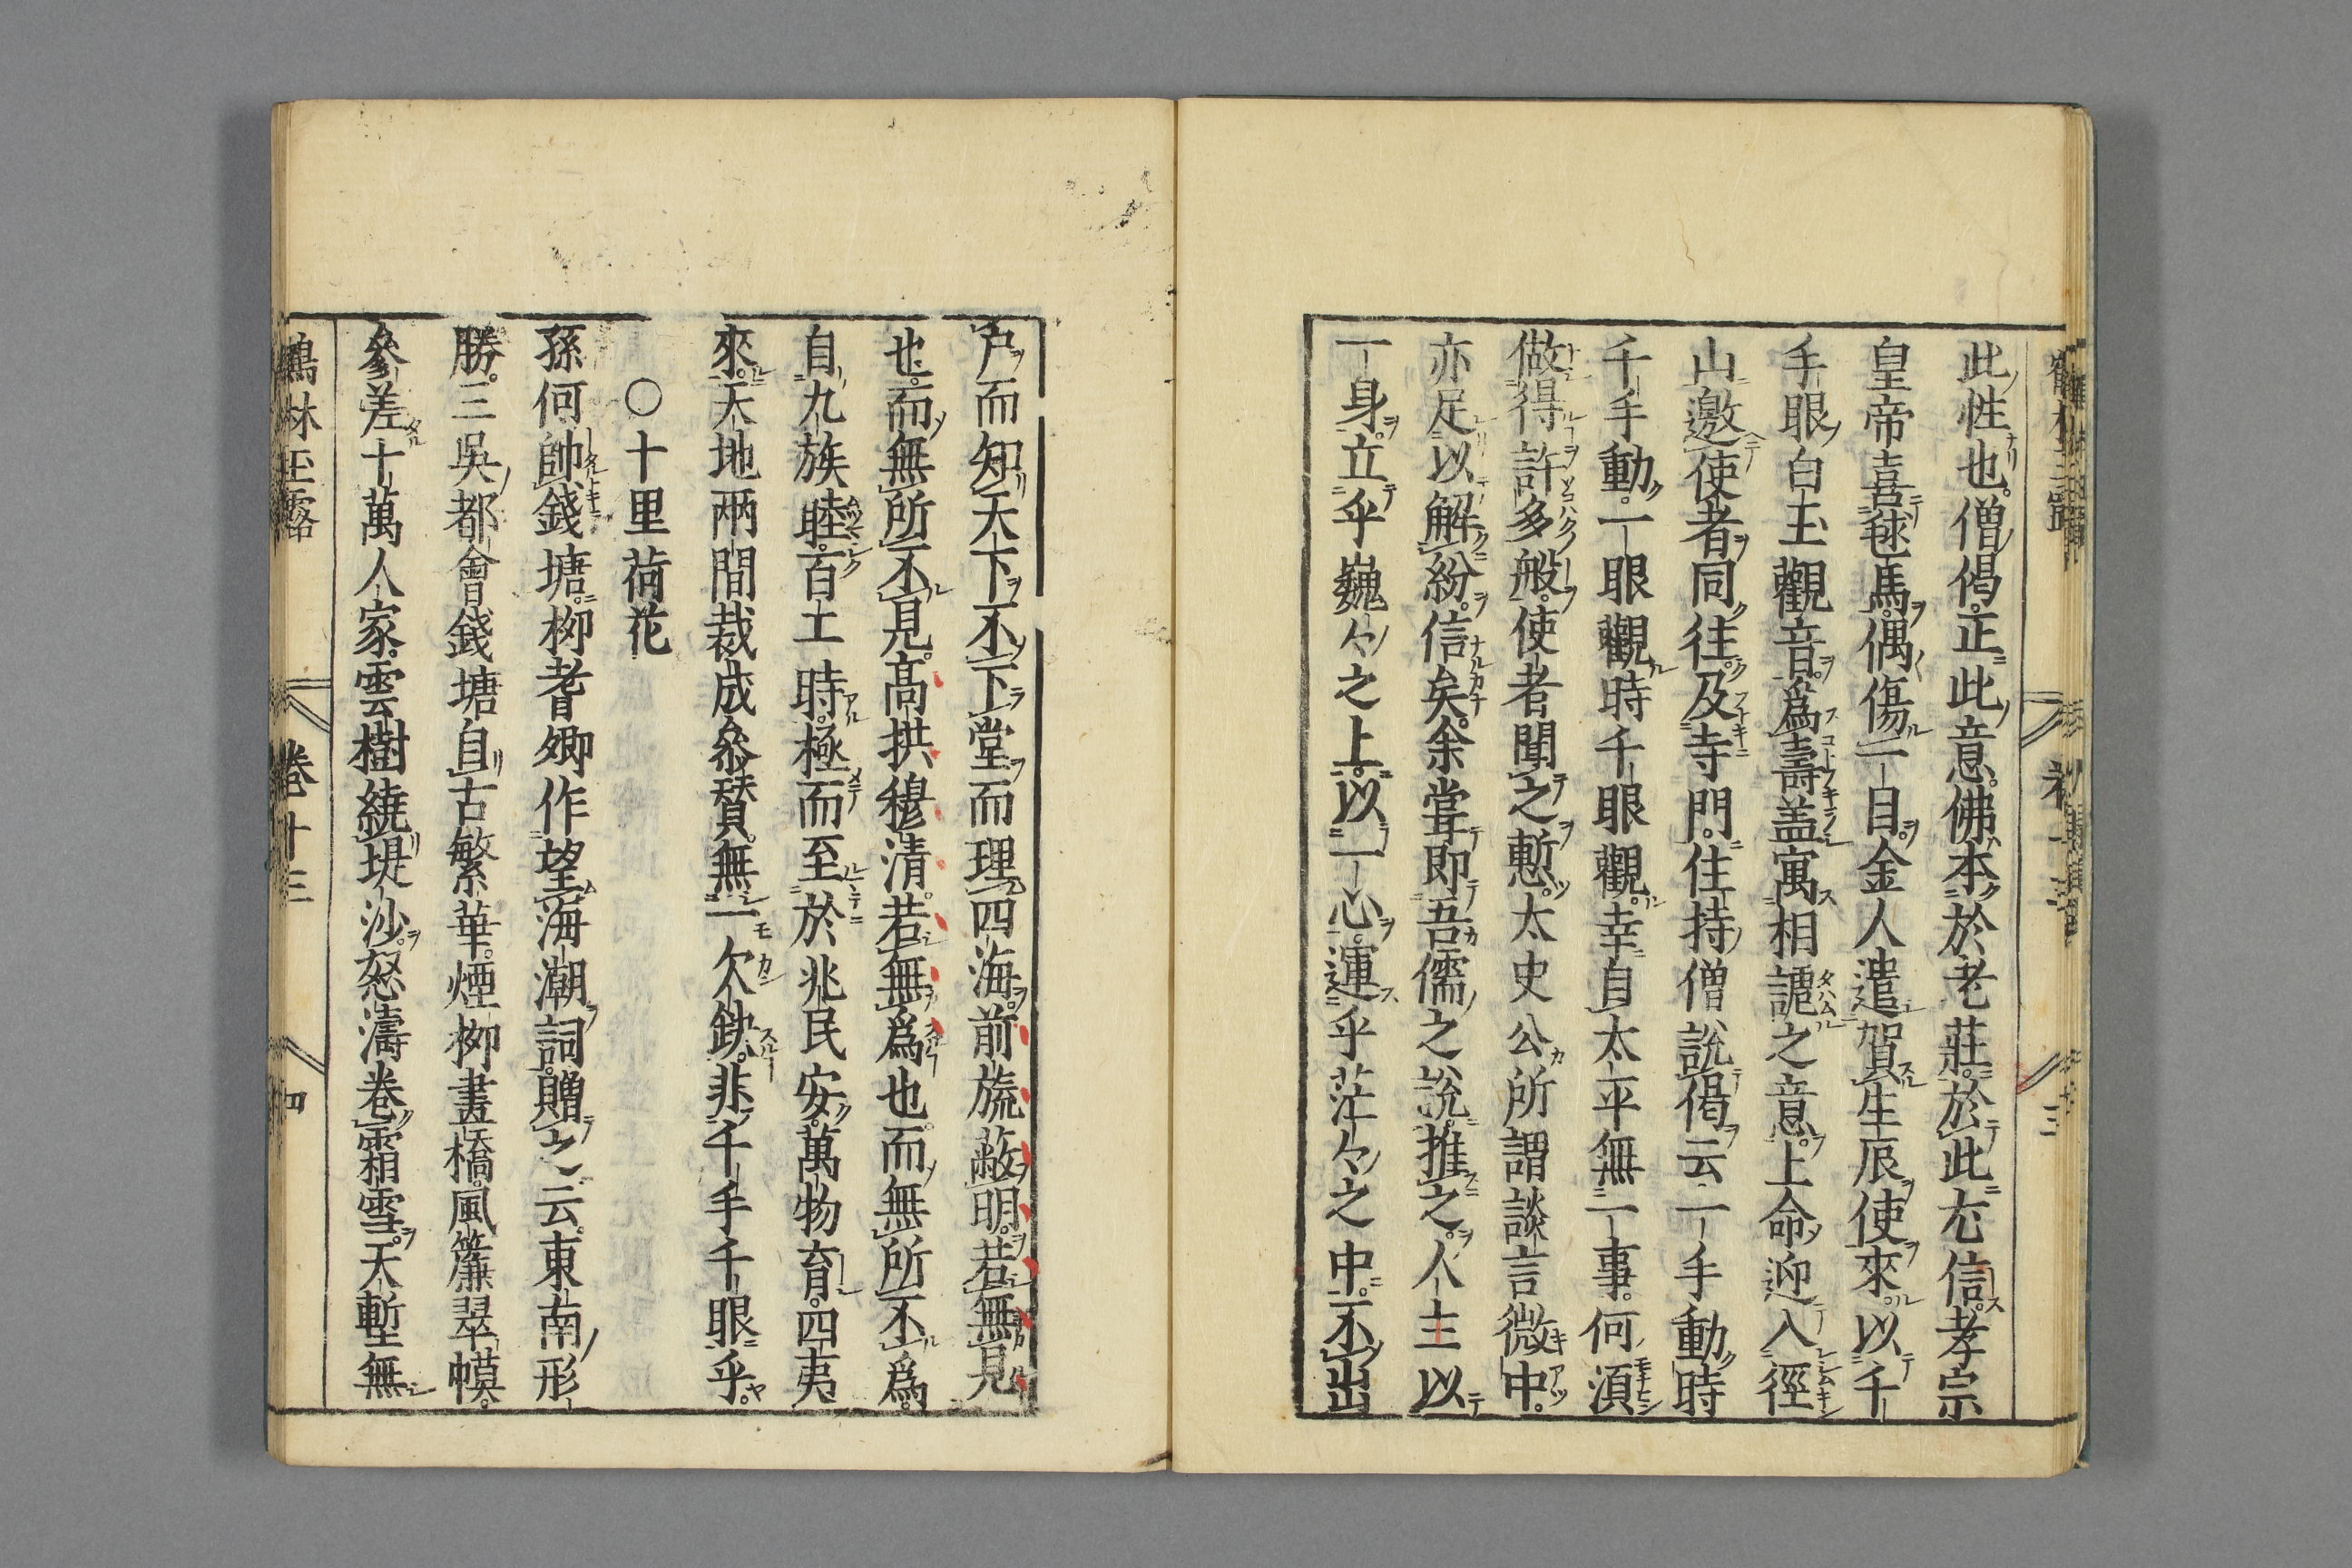 此性也。僧偈。正此意。佛本於老莊。於此尤信。孝宗
皇帝喜毬馬。偶傷一目。金人遣賀生辰使來。以千
手眼白玉觀音。爲壽盖寓相謔之意。上命迎入徑
山邀使者同往。及寺門。住持僧說偈云一手動時
千手動。一眼觀時千眼觀。幸自太平無一事。何湏
做得許多般。使者聞之慙。太史公所謂談言微中。
亦足以解紛。信矣。余甞即吾儒之說。推之。人主以
一身。立乎巍々之上。以一心。運乎茫々之中。不出
戶而知天下。不下堂而理四海。前旒蔽明。若無見
也。而無所不見。髙拱穆清。若無爲也。而無所不爲。
自九族睦。百工時。極而至於兆民安。萬物育。四夷
來。天地兩間裁成叅賛。無一欠鈌。非千手千眼乎。
〇十里荷花
孫何帥錢塘。栁耆卿作望海潮詞。贈之云。東南形
勝。三吳都會錢塘自古繁華。煙栁畫橋。風簾翠幙。
參差十萬人家。雲樹繞堤沙。怒濤卷霜雪。天塹無
鶴林玉露
卷十三
四